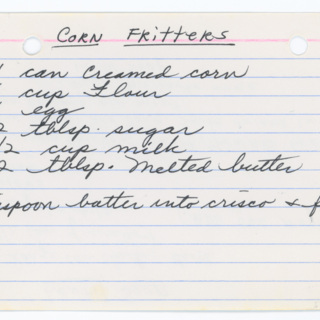 CORN FRITTERS
1 can creamed corn
1 cup Flour
1 egg
2 tblsp. sugar
1/2 cup milk
2 tblsp. Melted butter
spoon batter into crisco + f